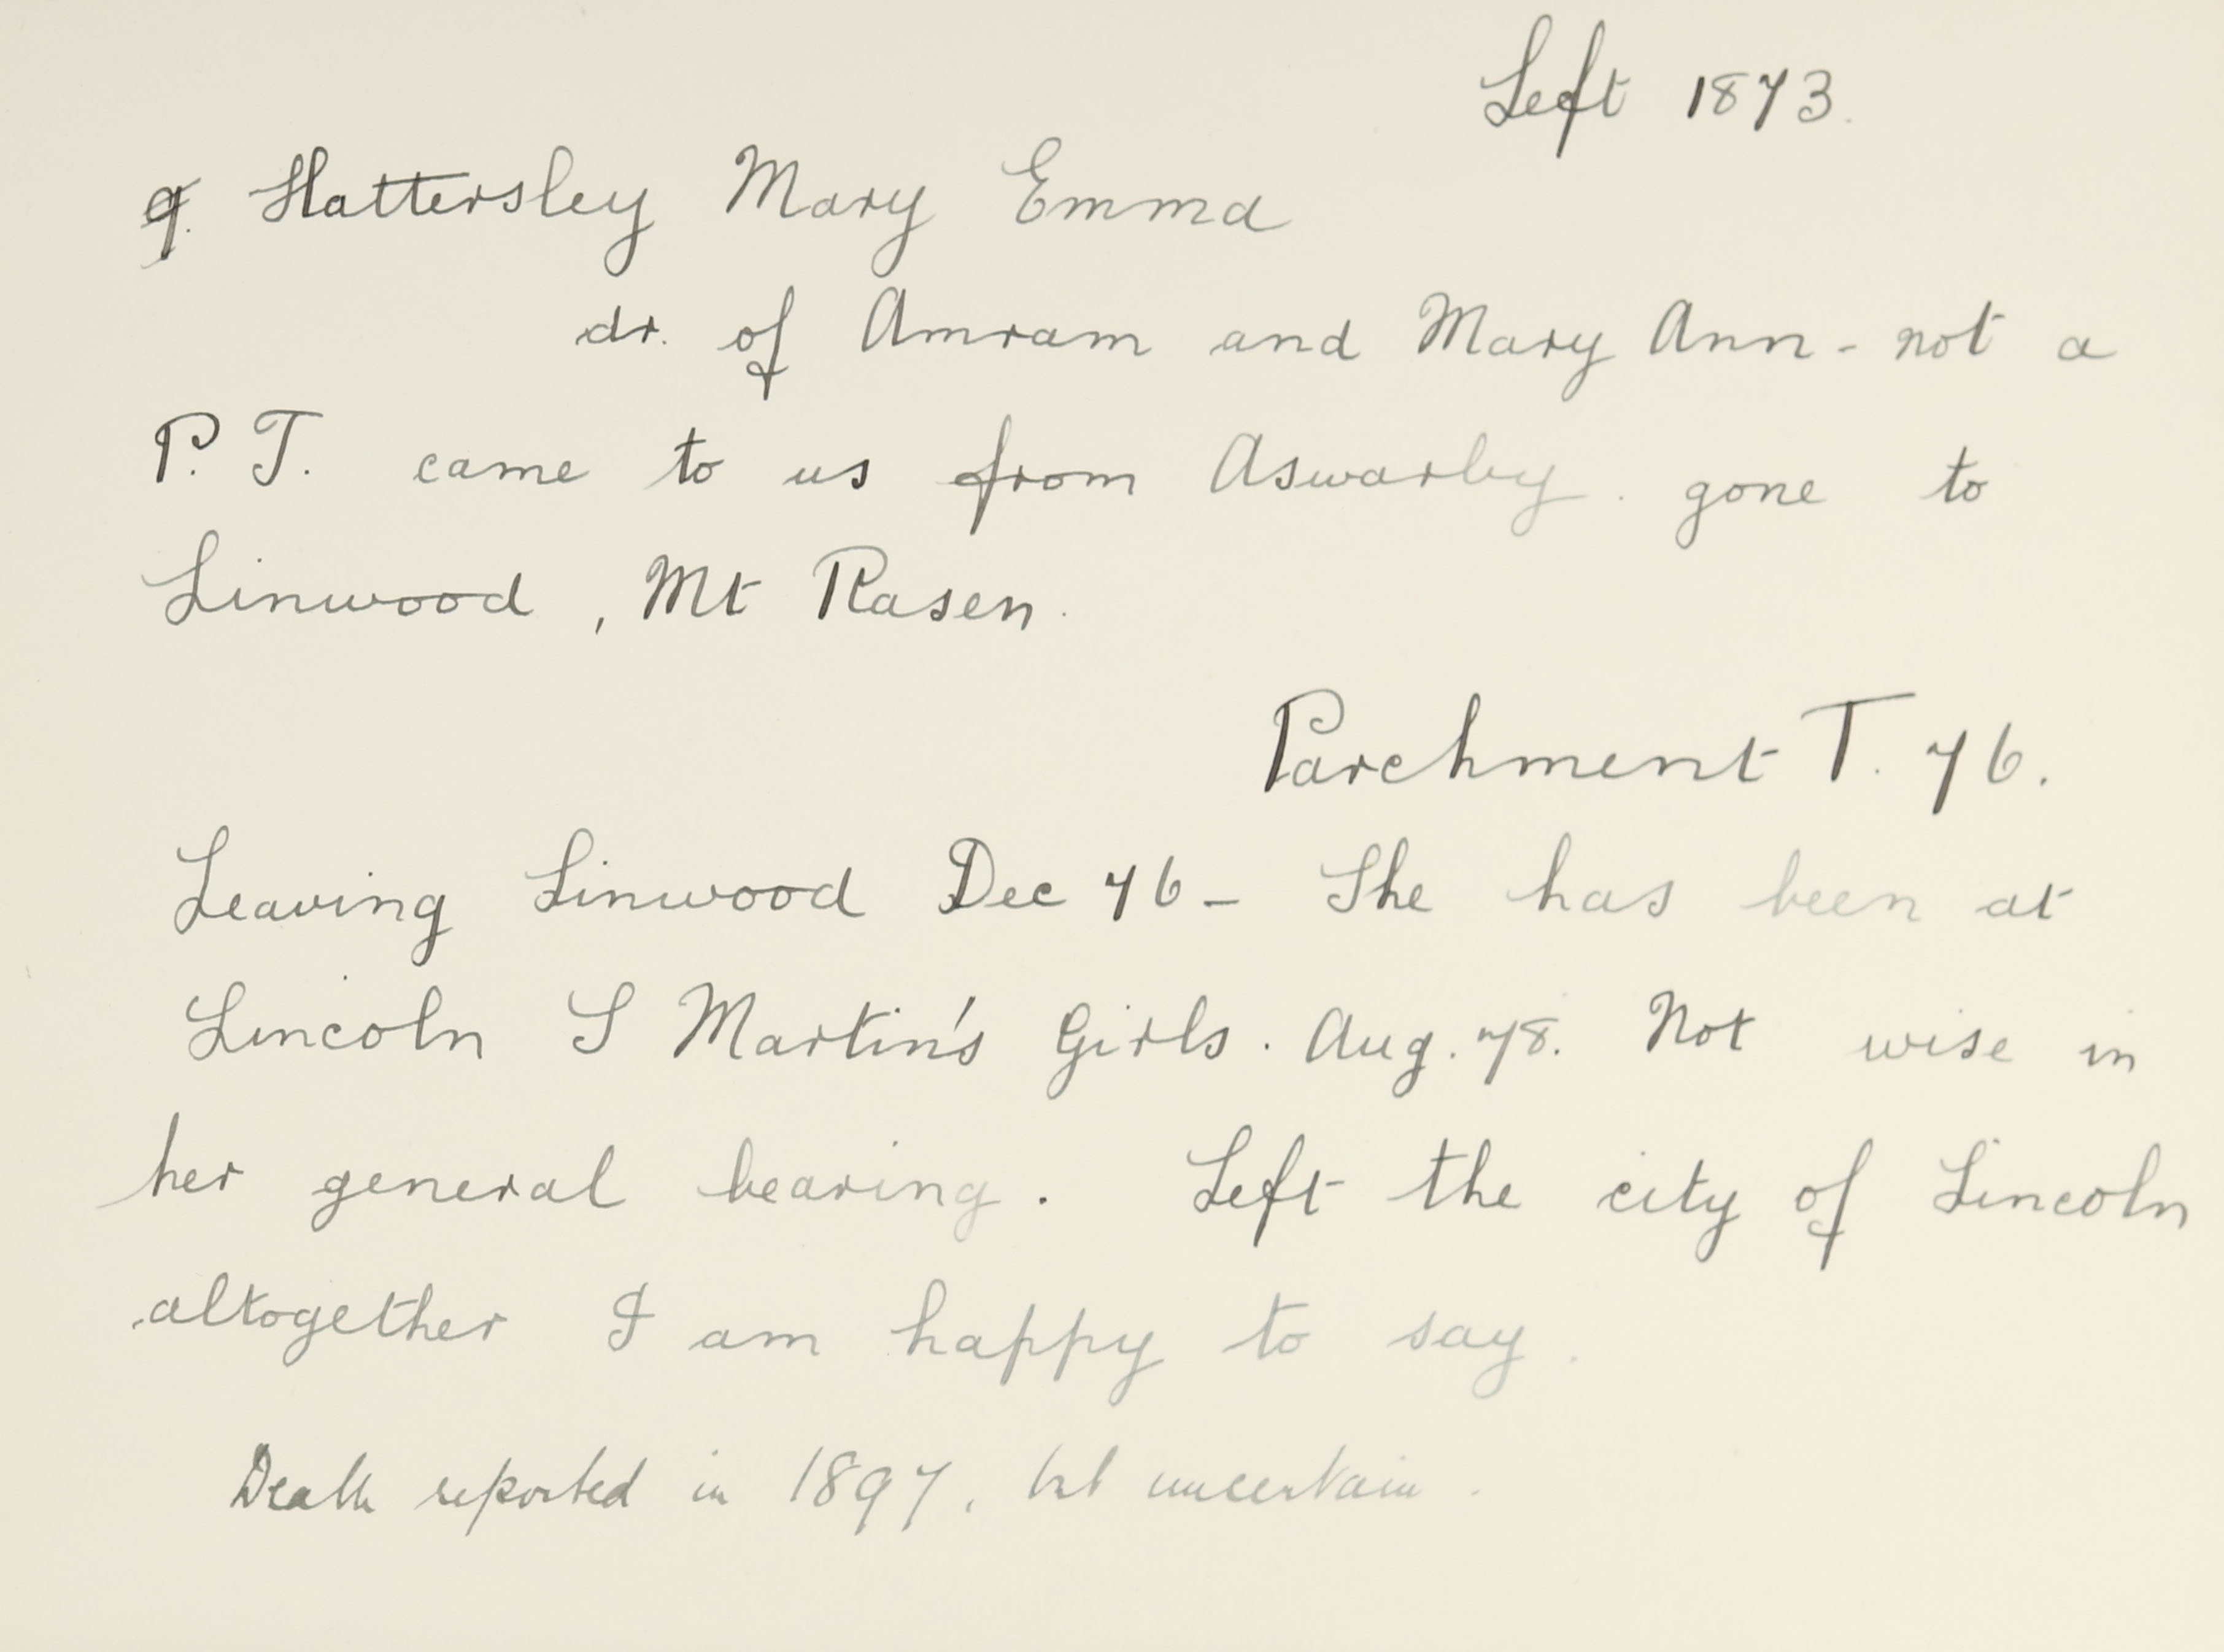 Left 1873.
9. Hattersley Mary Emma
dr. of Amram and Mary Ann - not a
P. T. came to us from Aswarby. gone to
Linwood, Mt Rasen.
Parchment T. 76.
Leaving Linwood Dec 76 - She has been at
Lincoln S Martin's Girls. Aug. 78. Not wise in
her general bearing. Left the city of Lincoln
altogether I am happy to say.
Death reported in 1897, but uncertain.